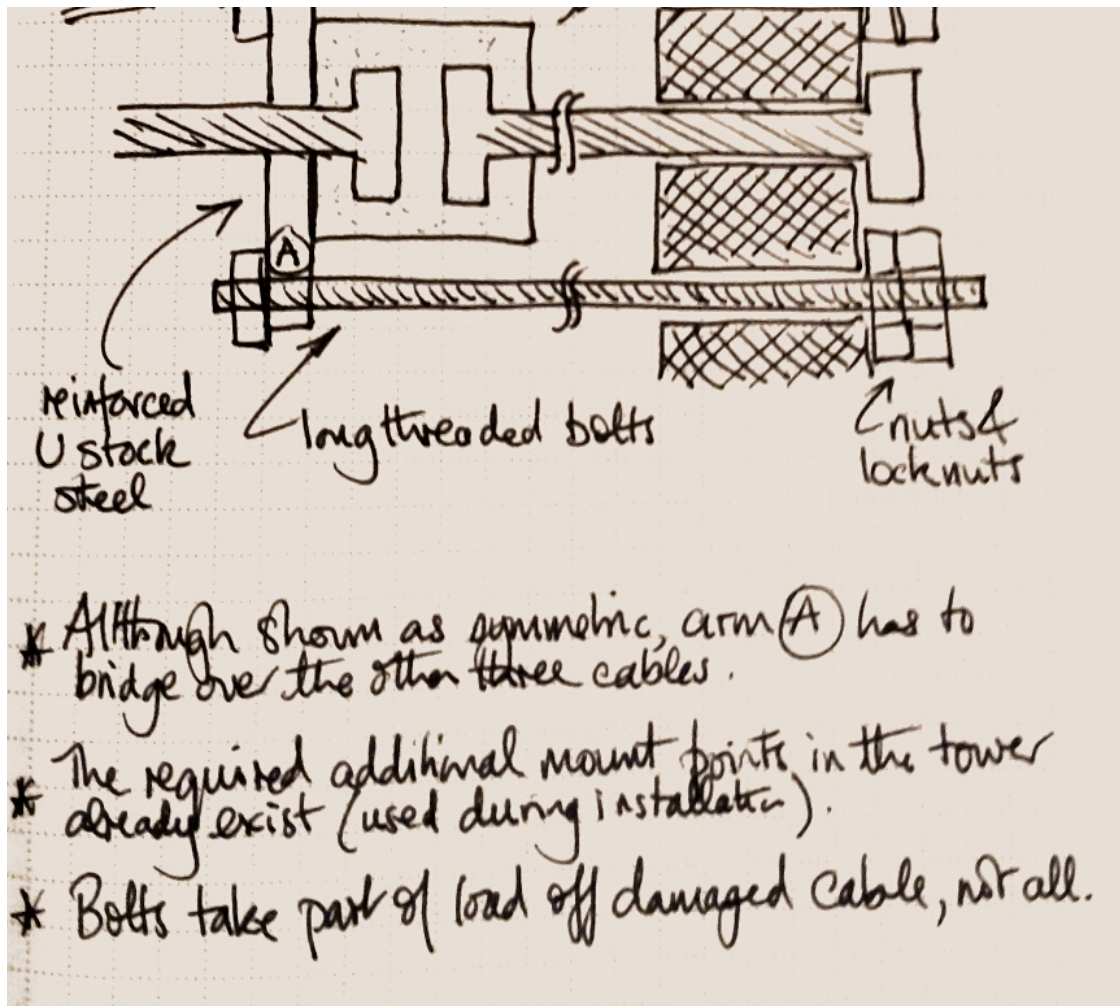 A
reinforced
U stock
steel
long threaded bolts
nuts &
locknuts
* Although shown as symmetric, arm A has to
bridge over the other three cables.
* The required additional mount points in the tower
already exist (used during installation).
* Bolts take part of load off damaged cable, not all.